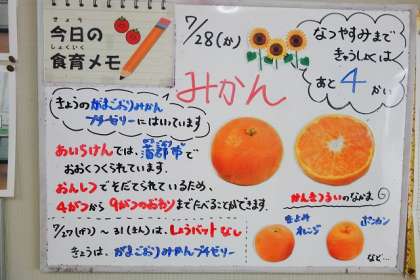 きょう
今日の
しょくいく
食育メモ
7/28(か)
なつやすみまで
きゅうしょくは
あと 4 かい
みかん
きょうのがまごおりみかん
プチゼリーにはいっています
あいちけんでは、蒲郡市で
おおくつくられています。
おんしつでそだてられているため、
4がつから9がつのおわりまでたべることができます。
かんきつるいのなかま
きよみ
オレンジ
ポンカン
など…
きょうは、がまごおりみかんプチゼリー